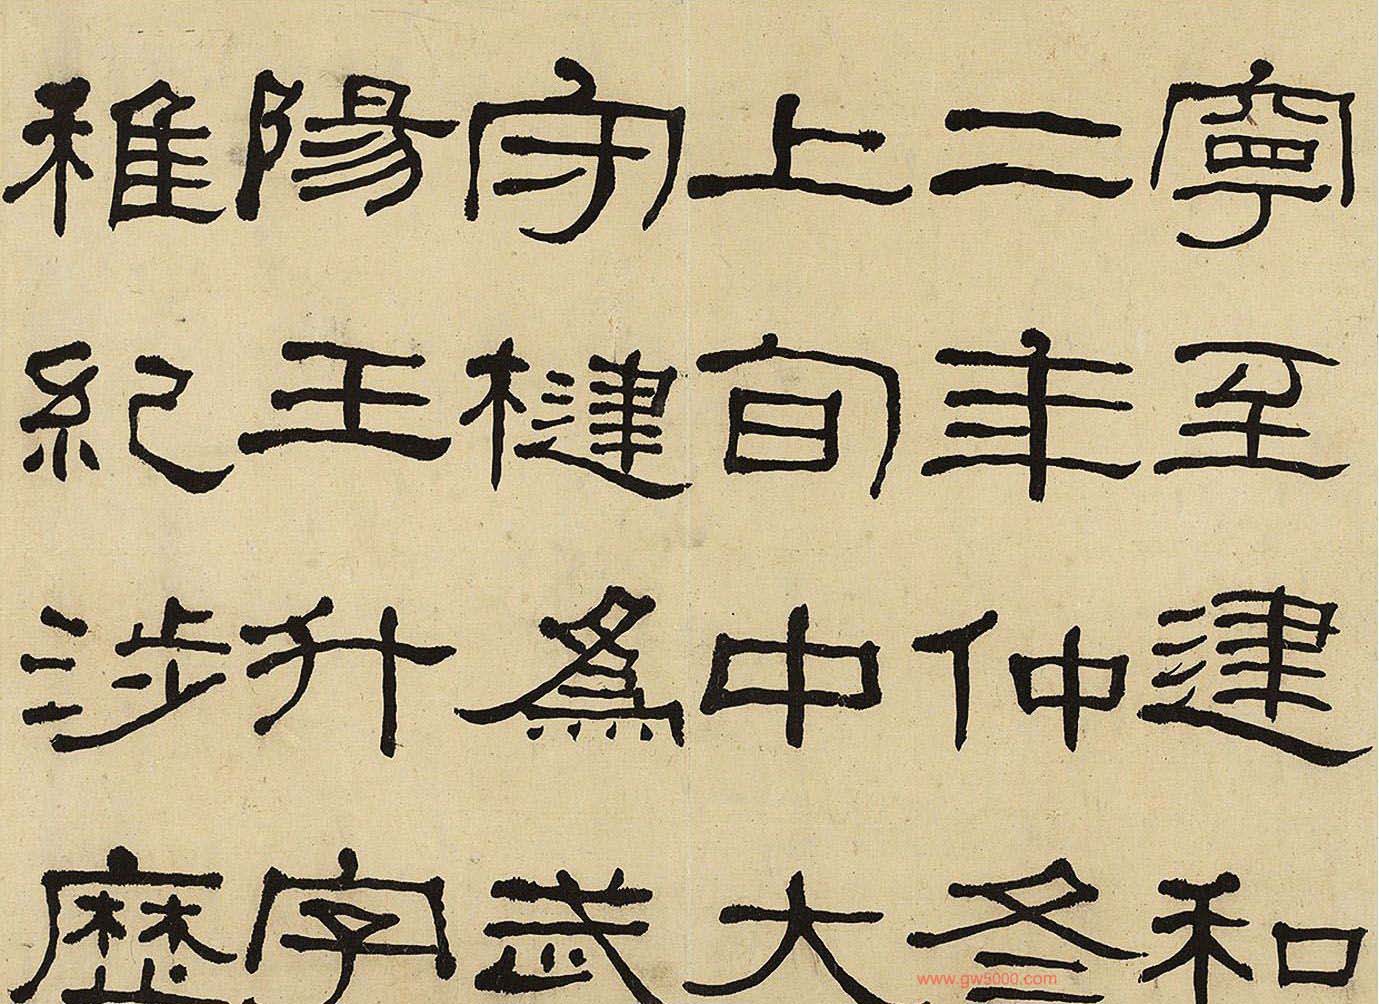 寧至建和
二年仲冬
上旬中大
守楗為武
陽王升字
稚紀涉歷
www.gw5000.com